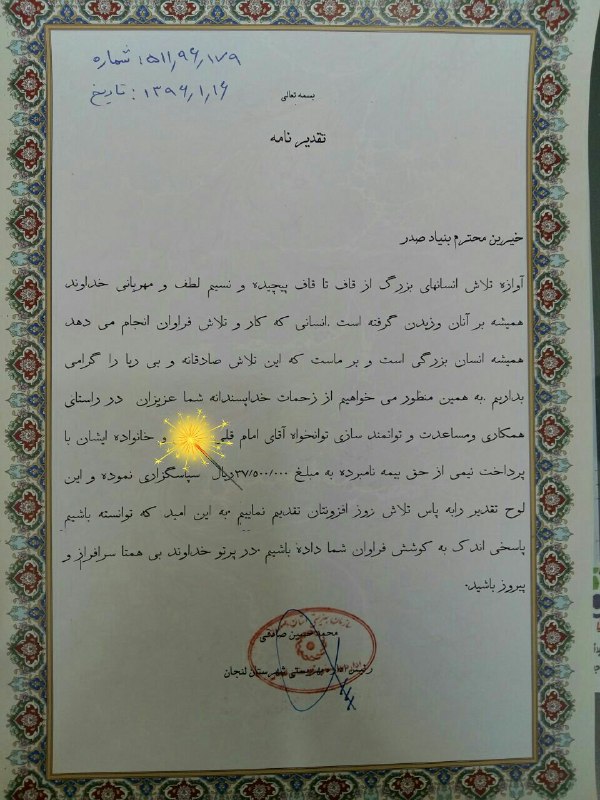 شماره : ۵۱۱٫۹۶٫۱۷۹
تاریخ : ۱۳۹۶٫۱٫۱۶
بسمه تعالی
تقدیر نامه
خیرین محترم بنیاد صدر
آوازه تلاش انسانهای بزرگ از قاف تا قاف پیچیده و نسیم لطف و مهربانی خداوند
همیشه بر آنان وزیدن گرفته است .انسانی که کار و تلاش فراوان انجام می دهد
همیشه انسان بزرگی است و بر ماست که این تلاش صادقانه و بی ریا را گرامی
بداریم .به همین منظور می خواهیم از زحمات خداپسندانه شما عزیزان در راستای
همکاری ومساعدت و توانمند سازی توانخواه آقای امام قلی و خانواده ایشان با
پرداخت نیمی از حق بیمه نامبرده به مبلغ ۳۷/۵۰۰/۰۰۰ریال سپاسگزاری نموده و این
لوح تقدیر رابه پاس تلاش روز افزونتان تقدیم نماییم .به این امید که توانسته باشیم
پاسخی اندک به کوشش فراوان شما داده باشیم .در پرتو خداوند بی همتا سرافراز و
پیروز باشید.
محمد حسین صادقی
رئیس اداره بهزیستی شهرستان لنجان